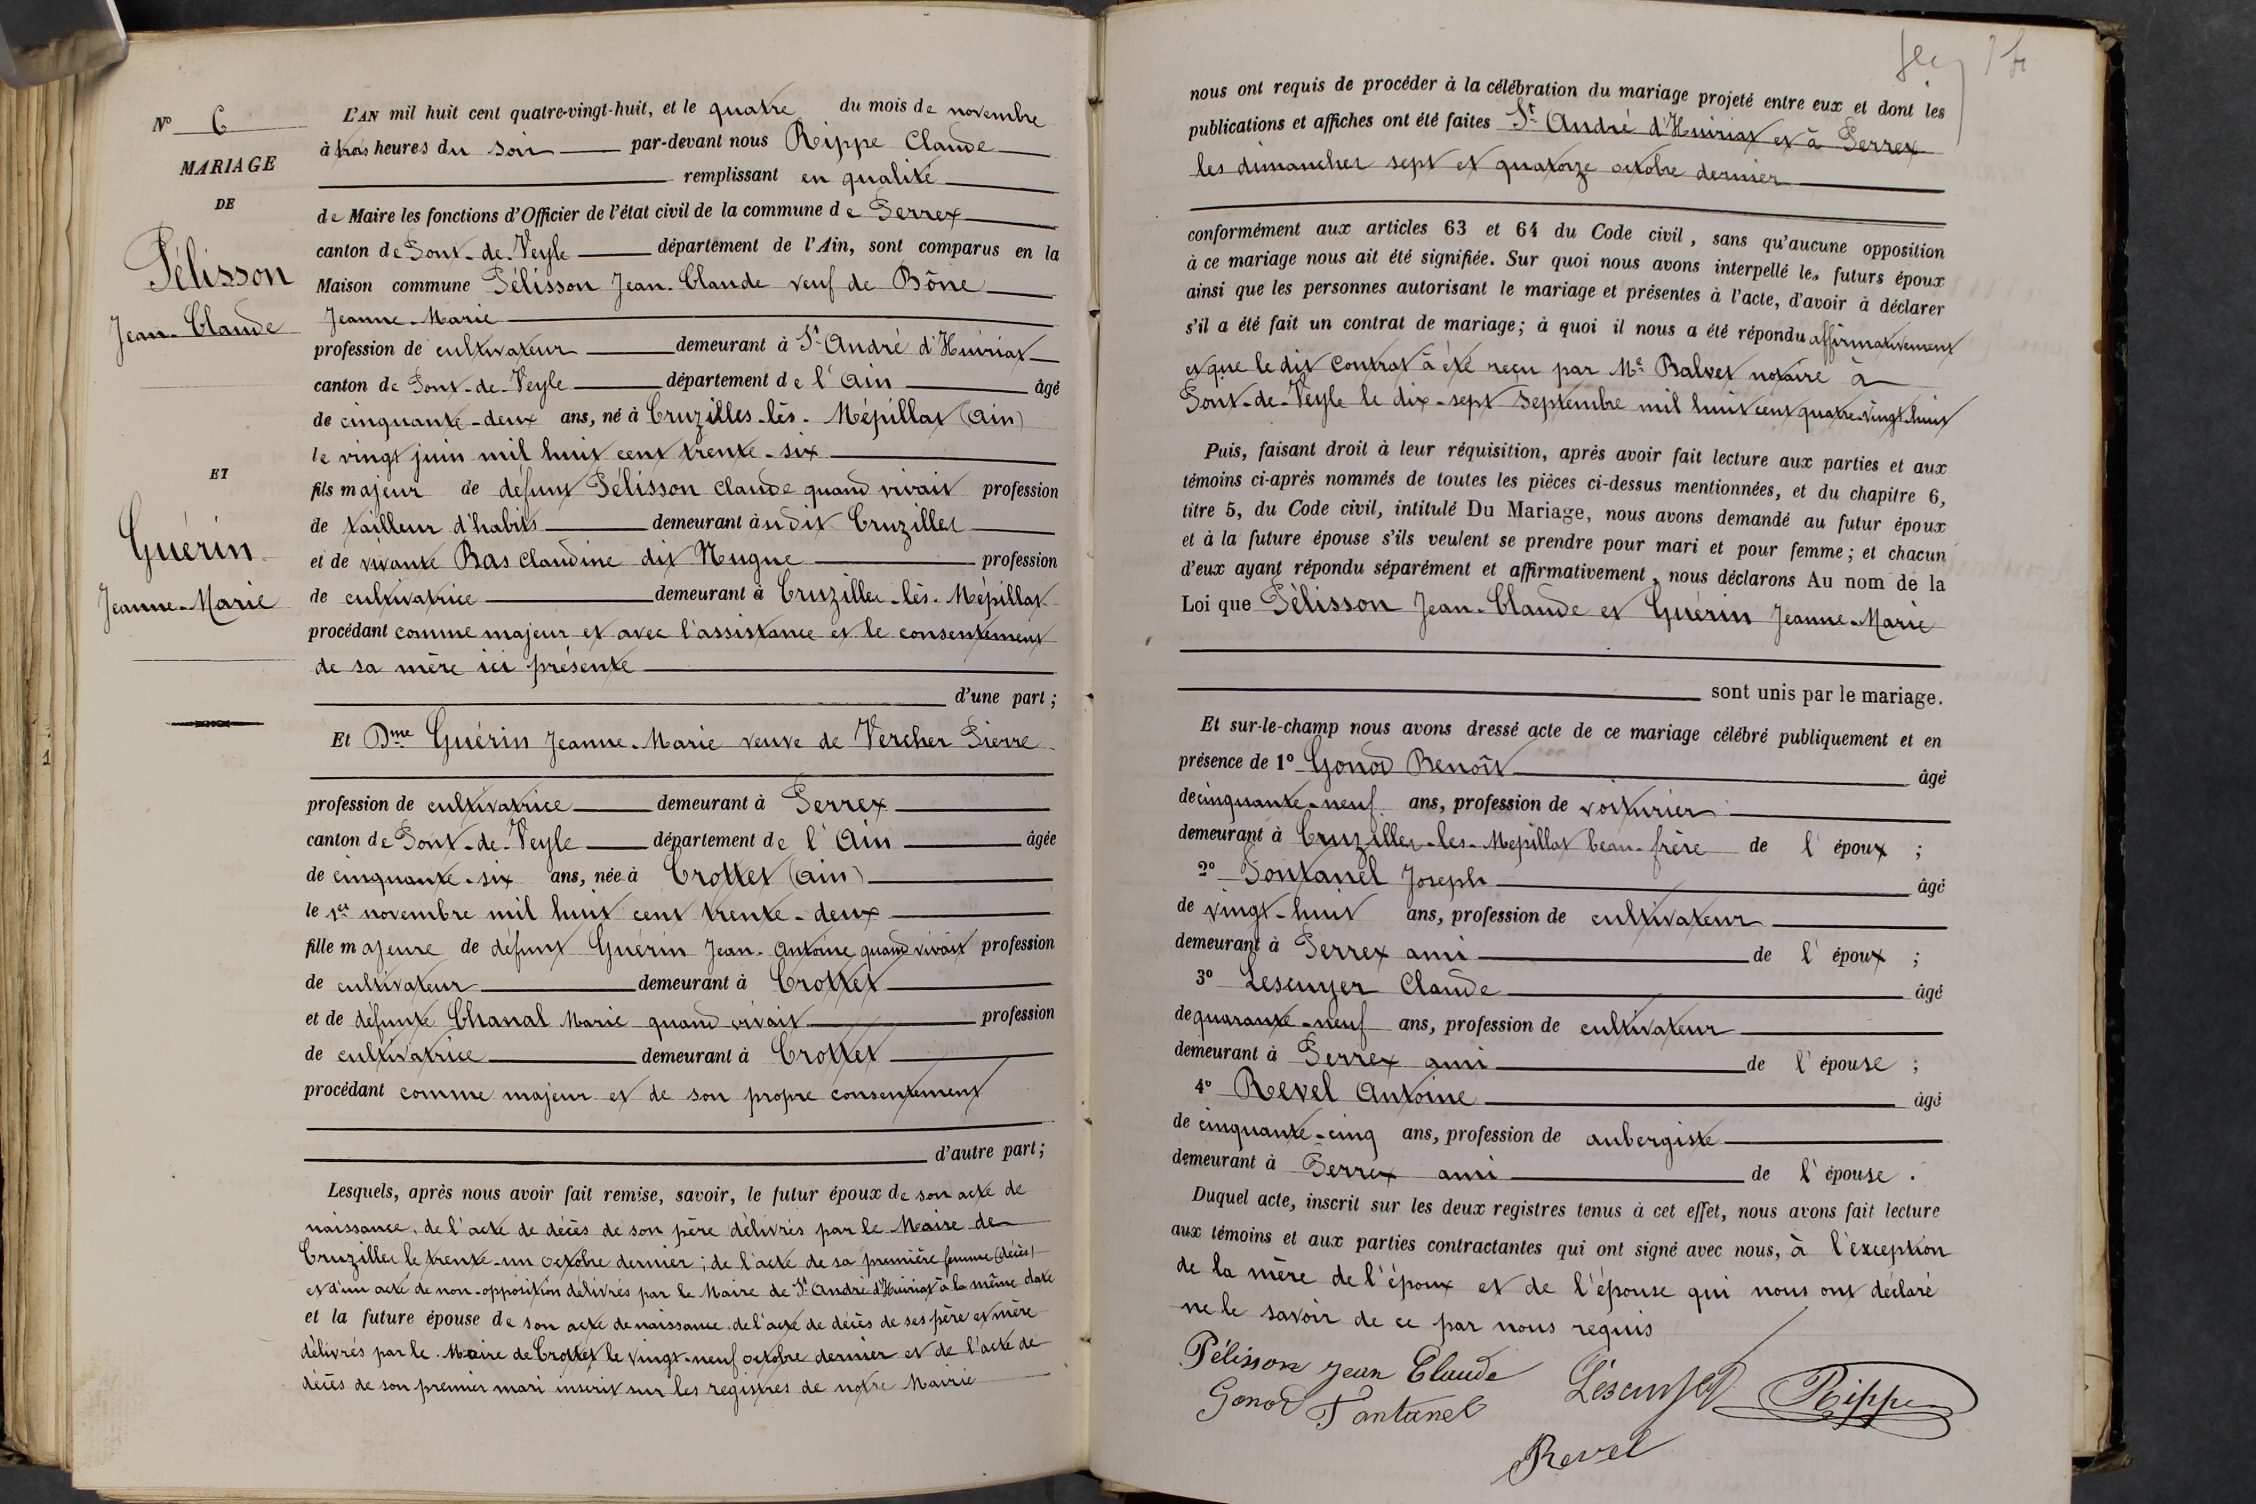 N° 6
MARIAGE
DE
Pélisson
Jean-Claude
ET
Guérin
Jeanne-Marie
L'AN mil huit cent quatre-vingt-huit, et le quatre du mois de novembre
à trois heures du soir par-devant nous Rippe Claude
remplissant en qualité
de Maire les fonctions d'Officier de l'état civil de la commune de Perrex
canton de Pont-de-Veyle département de l'Ain, sont comparus en la
Maison commune Pélisson Jean-Claude veuf de Bône
Jeanne-Marie
profession de cultivateur demeurant à St André d'Huiriat
canton de Pont-de-Veyle département de l'Ain âgé
de cinquante-deux ans, né à Cruzilles-lès-Mépillat (Ain)
le vingt juin mil huit cent trente-six
fils majeur de défunt Pélisson Claude quand vivait profession
de tailleur d'habits demeurant àudit Cruzilles
et de vivante Bas Claudine dit Nugue profession
de cultivatrice demeurant à Cruzilles-lès-Mépillat
procédant comme majeur et avec l'assistance et le consentement
de sa mère ici présente
d'une part ;
Et Dme Guérin Jeanne-Marie veuve de Vercher Pierre
profession de cultivatrice demeurant à Perrex
canton de Pont-de-Veyle département de l'Ain âgée
de cinquante-six ans, née à Crottet (Ain)
le 1er novembre mil huit cent trente-deux
fille majeure de défunt Guérin Jean-Antoine quand vivait profession
de cultivateur demeurant à Crottet
et de défunte Chanal Marie quand vivait profession
de cultivatrice demeurant à Crottet
procédant comme majeur et de son propre consentement
d'autre part ;
Lesquels, après nous avoir fait remise, savoir, le futur époux de son acte de
naissance, de l'acte de décès de son père délivrés par le Maire de
Cruzilles le trente-un octobre dernier ; de l'acte de sa première femme (décès)
et d'un acte de non-opposition délivrés par le Maire de St André d'Huiriat à la même date
et la future épouse de son acte de naissance, de l'acte de décès de ses père et mère
délivrés par le Maire de Crottet le vingt-neuf octobre dernier et de l'acte de
décès de son premier mari inscrit sur les registres de notre Mairie
nous ont requis de procéder à la célébration du mariage projeté entre eux et dont les
publications et affiches ont été faites St André d'Huiriat et à Perrex
les dimanches sept et quatorze octobre dernier
conformément aux articles 63 et 64 du Code civil, sans qu'aucune opposition
à ce mariage nous ait été signifiée. Sur quoi nous avons interpellé les futurs époux
ainsi que les personnes autorisant le mariage et présentes à l'acte, d'avoir à déclarer
s'il a été fait un contrat de mariage ; à quoi il nous a été répondu affirmativement
et que le dit contrat à été reçu par Me Balvet notaire à
Pont-de-Veyle le dix-sept Septembre mil huit cent quatre-vingt-huit
Puis, faisant droit à leur réquisition, après avoir fait lecture aux parties et aux
témoins ci-après nommés de toutes les pièces ci-dessus mentionnées, et du chapitre 6,
titre 5, du Code civil, intitulé Du Mariage, nous avons demandé au futur époux
et à la future épouse s'ils veulent se prendre pour mari et pour femme ; et chacun
d'eux ayant répondu séparément et affirmativement, nous déclarons Au nom de la
Loi que Pélisson Jean-Claude et Guérin Jeanne-Marie
sont unis par le mariage.
Et sur-le-champ nous avons dressé acte de ce mariage célébré publiquement et en
présence de 1° Gonod Benoît âgé
de cinquante-neuf ans, profession de voiturier
demeurant à Cruzilles-les-Mepillat beau-frère de l'époux ;
2° Fontanel Joseph âgé
de vingt-huit ans, profession de cultivateur
demeurant à Perrex ami de l'époux ;
3° Lescuyer Claude âgé
de quarante-neuf ans, profession de cultivateur
demeurant à Perrex ami de l'épouse ;
4° Revel Antoine âgé
de cinquante-cinq ans, profession de aubergiste
demeurant à Perrex ami de l'épouse.
Duquel acte, inscrit sur les deux registres tenus à cet effet, nous avons fait lecture
aux témoins et aux parties contractantes qui ont signé avec nous, à l'exception
de la mère de l'époux et de l'épouse qui nous ont déclaré
ne le savoir de ce par nous requis
Pélisson Jean Claude
Lescuyer Rippe
Gonod Fontanel
Revel